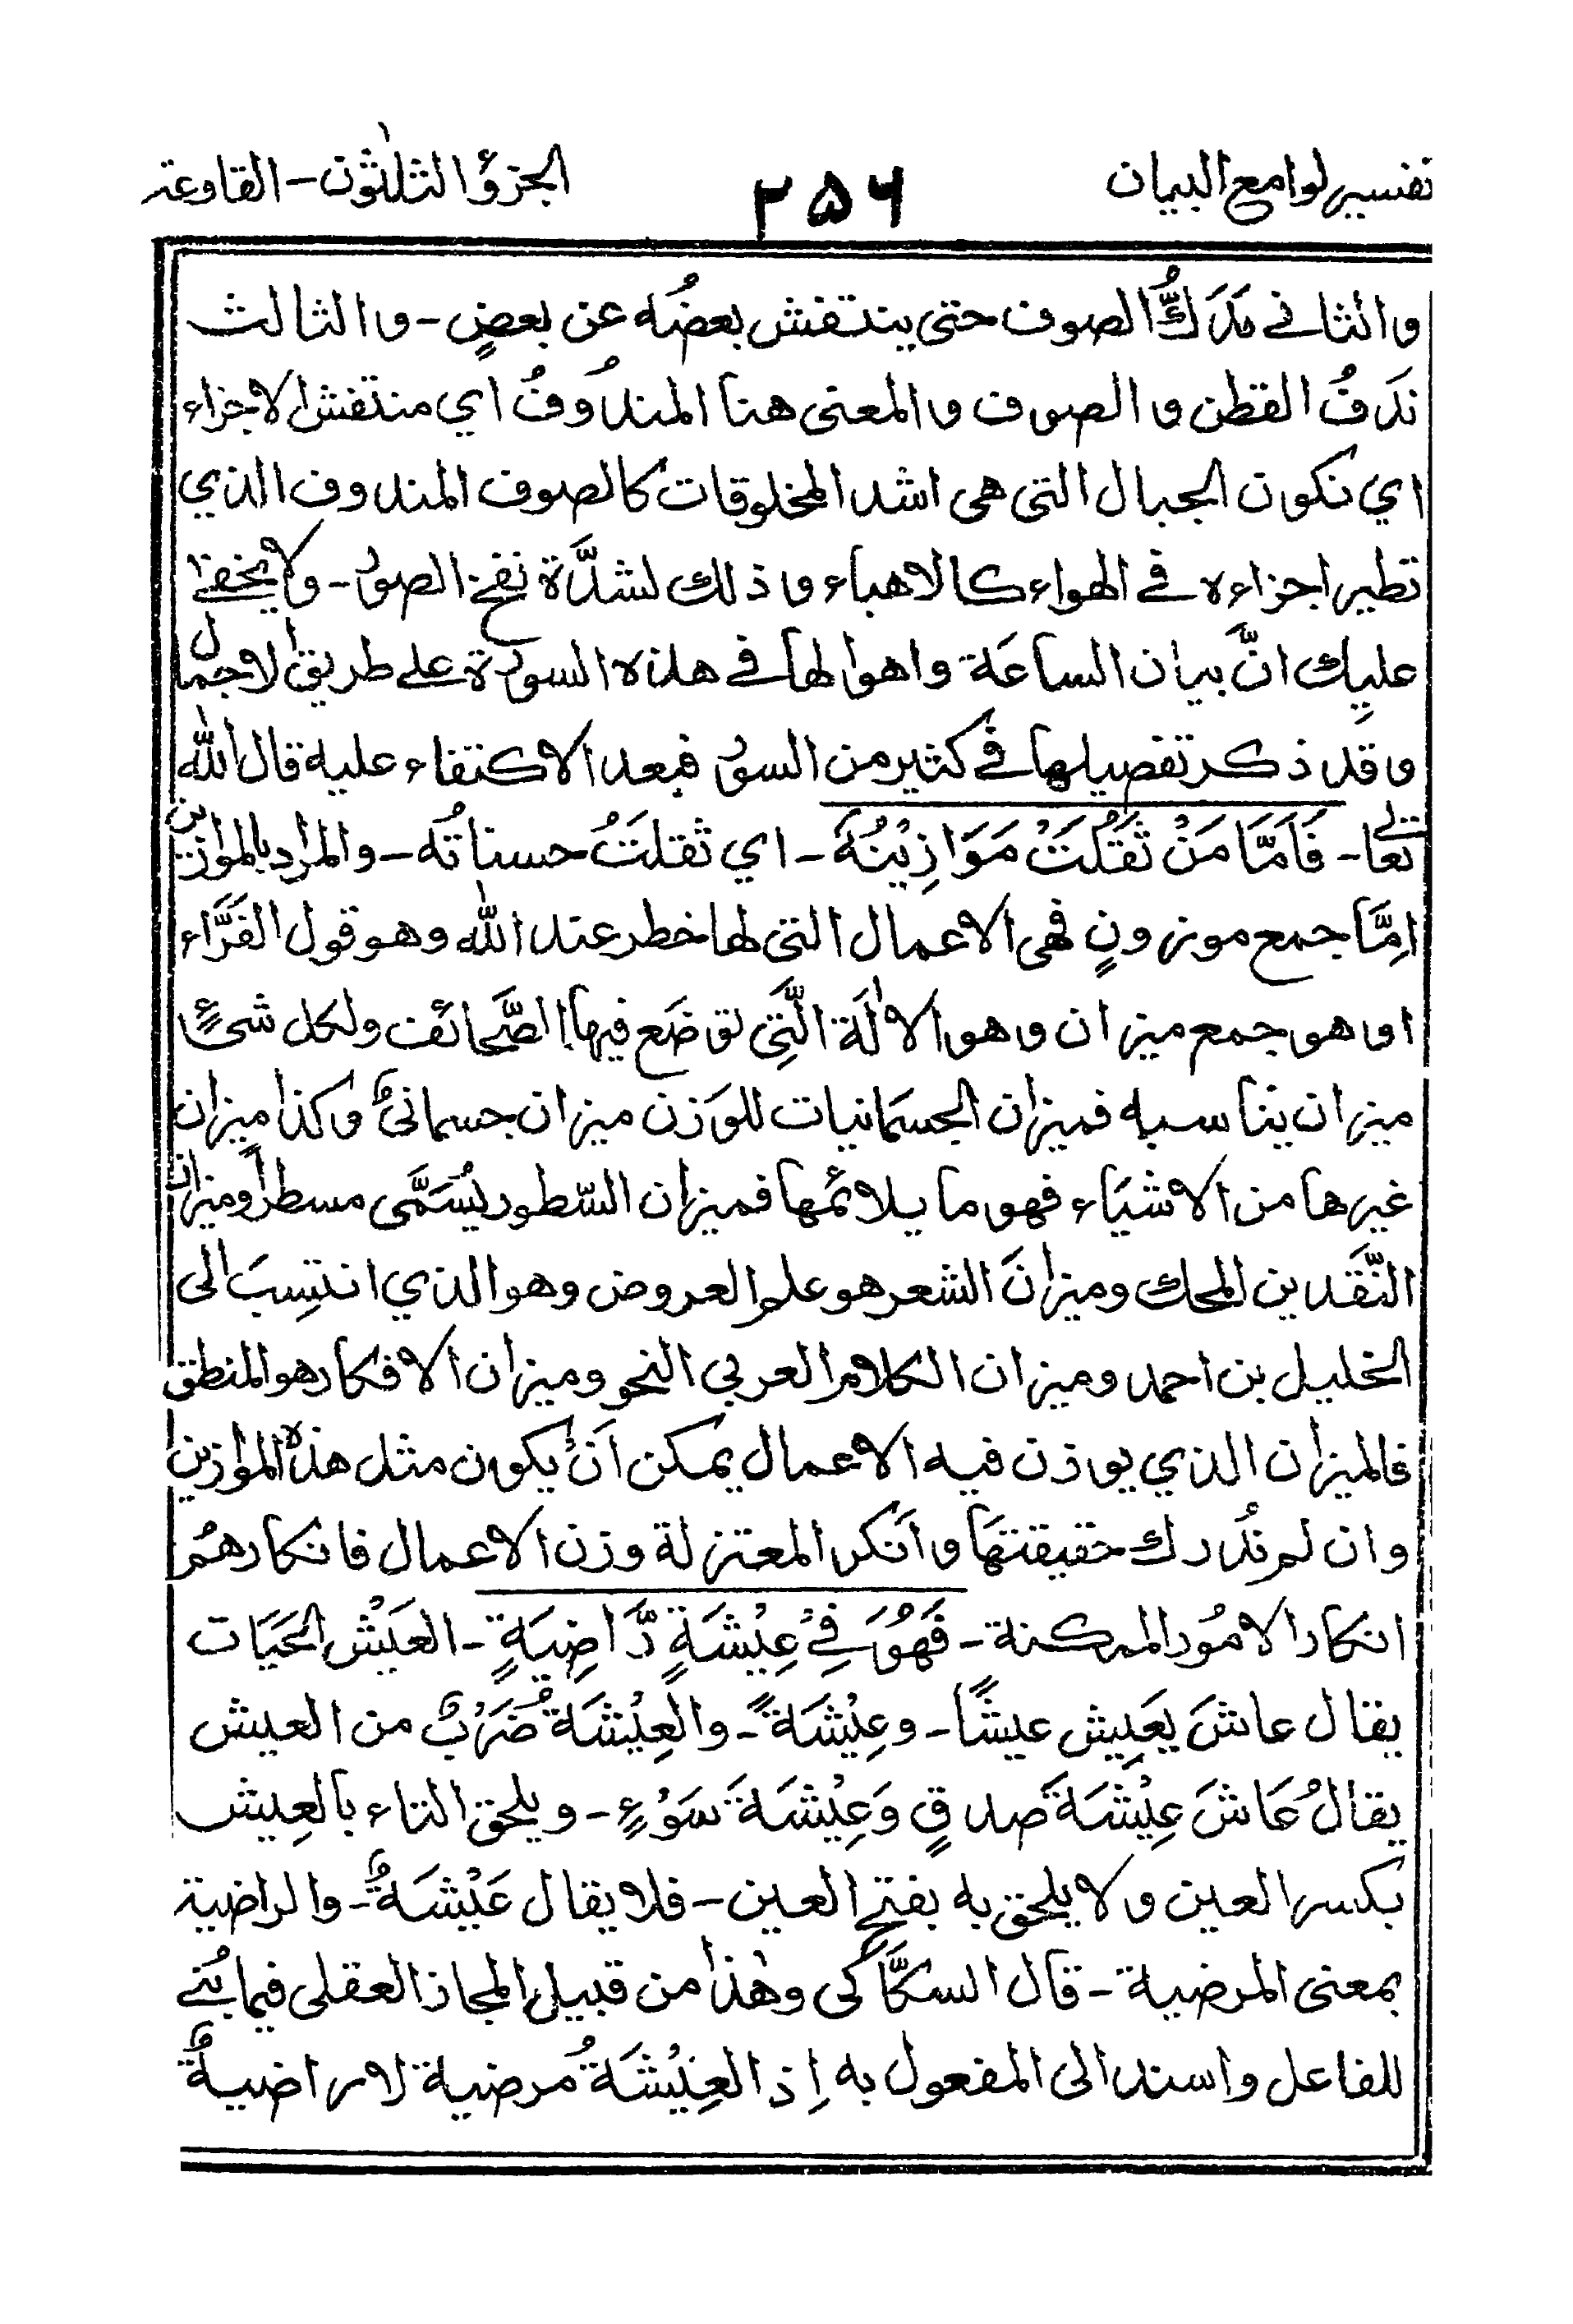 تفسير لوامع البيان ۲۵۶ الجزؤ الثلٰثون - القارعة
والثاني مَدَكُّ الصوف حتى ينتفش بعضُه عن بعضٍ - والثالث
نَدَفُ القطن والصوف والمعنى هنا المندُوفُ اي منتفش الاجزاء
اي تكون الجبال التى هى اشد المخلوقات كالصوف المندوف الذي
تطير اجزاءه في الهواء كالاهباء وذلك لشدَّة نفخ الصور - ولا يخفى
عليك انَّ بيان الساعَة واهوالها في هذه السورة على طريق الاجمال
وقد ذكر تفصيلها في كثير من السور فبعد الاكتفاء عليه قال اللّٰه
تعالى - فَاَمَّا مَنْ ثَقُلَتْ مَوَازِيْنُهٗ - اي ثقلَتُ حسناتُه - والمراد بالموازين
اِمَّا جمع موزونٍ فهى الاعمال التى لها خطر عند اللّٰه وهو قول الفَرَّاء
او هو جمع ميزان وهو الاٰلَة الَّتِى توضَع فيها الصَّحائف ولكل شئٍ
ميزان يناسبه فميزان الجسمَانيات للوَزن ميزان جسمانىٌ وكذا ميزان
غيرها من الاشيَاء فهو ما يلائمها فميزان السّطور يُسَمَّى مسطراً وميزان
النَّقَدين المحك وميزانَ الشعر هو علم العروض وهو الذي انتسِبَ الى
الخليل بن احمد وميزان الكلام العربي النحو وميزان الافكار هو المنطق
فالميزان الذي يوزن فيه الاعمال يمكن اَنْ يكون مثل هذه الموازين
وان لم نُدرك حقيقتهَا واَنكر المعتزلة وزن الاعمال فانكارهُم
انكار الامُور الممكنة - فَهُوَ فِيْ عِيْشَةٍ رَّاضِيَةٍ - العَيْش الحَيَات
يقال عاشَ يَعِيش عيشًا - وعِيْشَةً - والعِيْشَةُ ضَرْبٌ من العيش
يقالُ عَاشَ عِيْشَةَ صدقٍ وَعِيْشَةَ سَوْءٍ - ويلحق التاء بالعِيش
بكسر العين ولا يلحق به بفتح العين - فلا يقال عَيْشَةٌ - والراضية
بمعنى المرضية - قال السكَّاكى وهٰذا من قبيل المجاز العقلى فيما بُنى
للفاعل واسند الى المفعول به اِذ العِيْشَةُ مرضية لا راضيةٌ